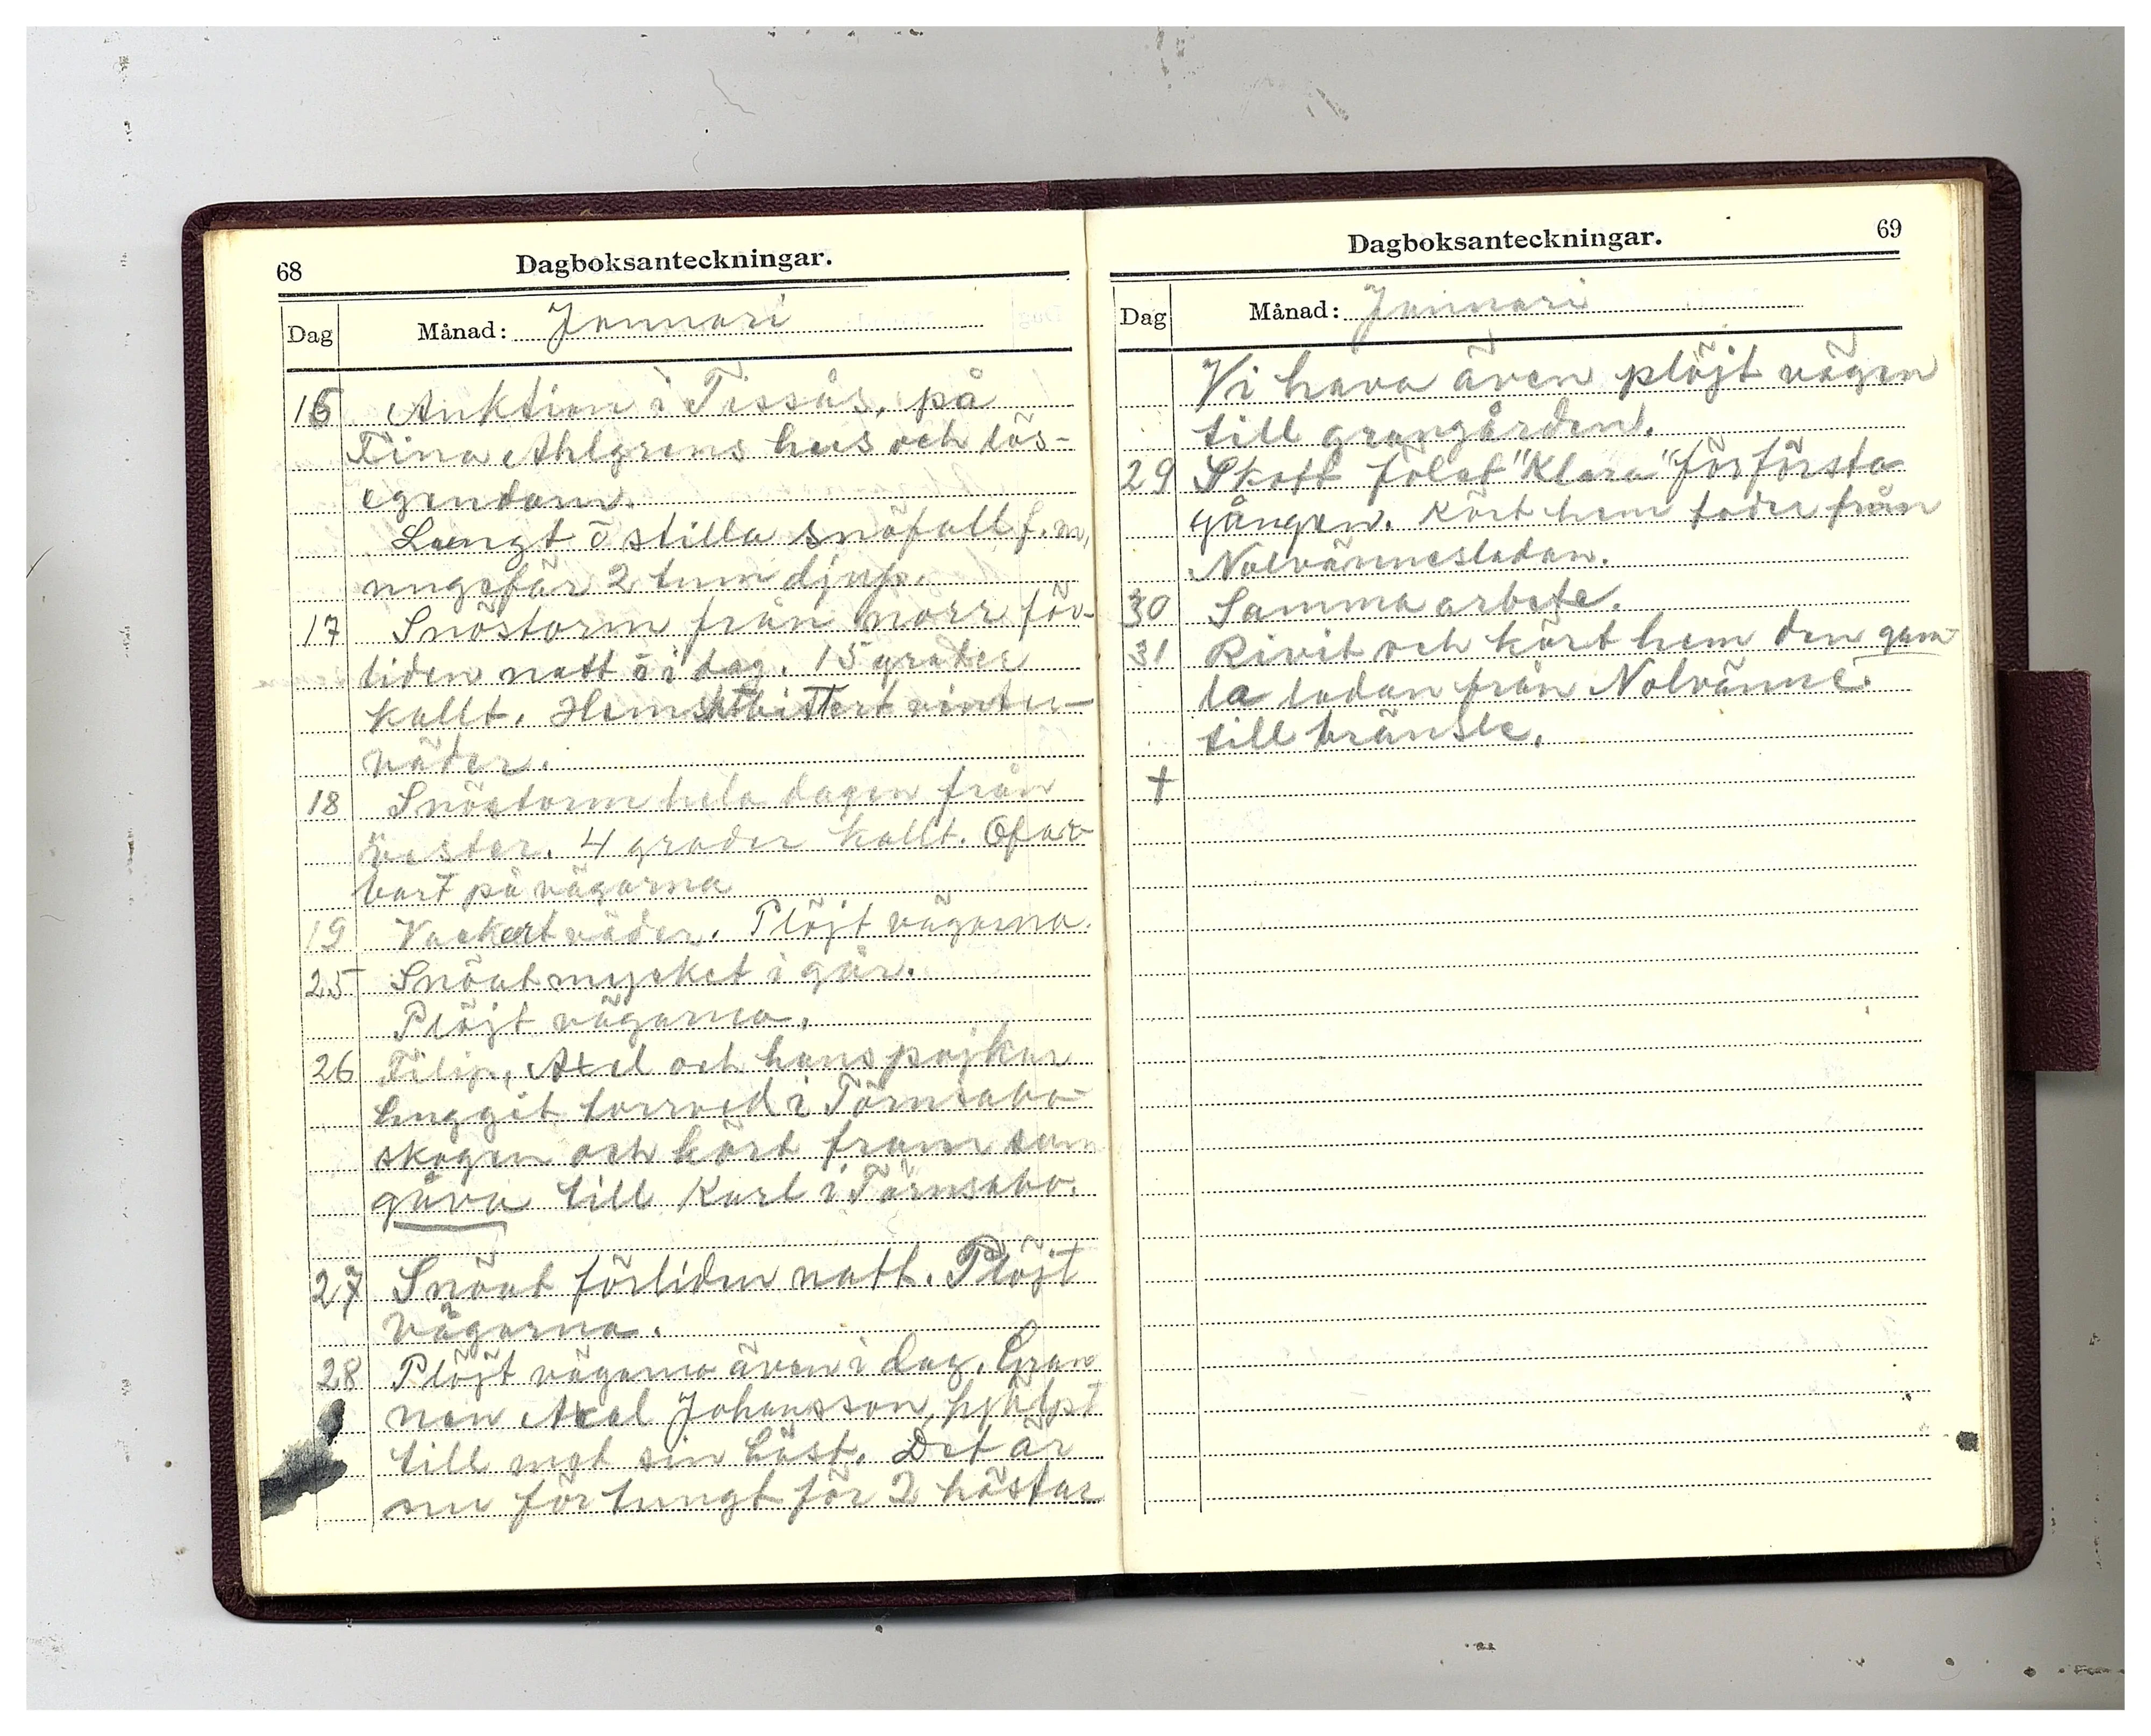 68
Dagboksanteckningar.
Dag
Månad: Januari
16 Auktion i Tissås, på
Tina Ahlgrens hus och lös-
egendom.
Lungt o stilla snöfall f.m,
ungefär 2 tum djup.
17 Snöstorm från norr för-
liden natt o i dag. 15 grader
kallt. Hemskt bistert vinter-
väder.
18 Snöstorm hela dagen från
väster. 4 grader kallt. Ofar-
bart på vägarna
19 Vackert väder. Plöjt vägarna.
25 Snöat mycket i går.
Plöjt vägarna.
26 Filip, Axel och hans pojkar
huggit torrved i Törnsabo-
skogen och kört fram som
gåva till Karl i Törnsabo.
27 Snöat förliden natt. Plöjt
vägarna.
28 Plöjt vägarna även i dag. Gran
nen Axel Johansson hjälpt
till med sin häst. Det är
nu för tungt för 2 hästar
69
Dagboksanteckningar.
Dag
Månad: Januari
Vi hava även plöjt vägen
till granngården.
29 Skott fölet "Klara" för första
gången. Kört hem foder från
Nolvännesladan.
30 Samma arbete.
31 Rivit och kört hem den gam-
la ladan från Nolvänne
till bränsle.
+